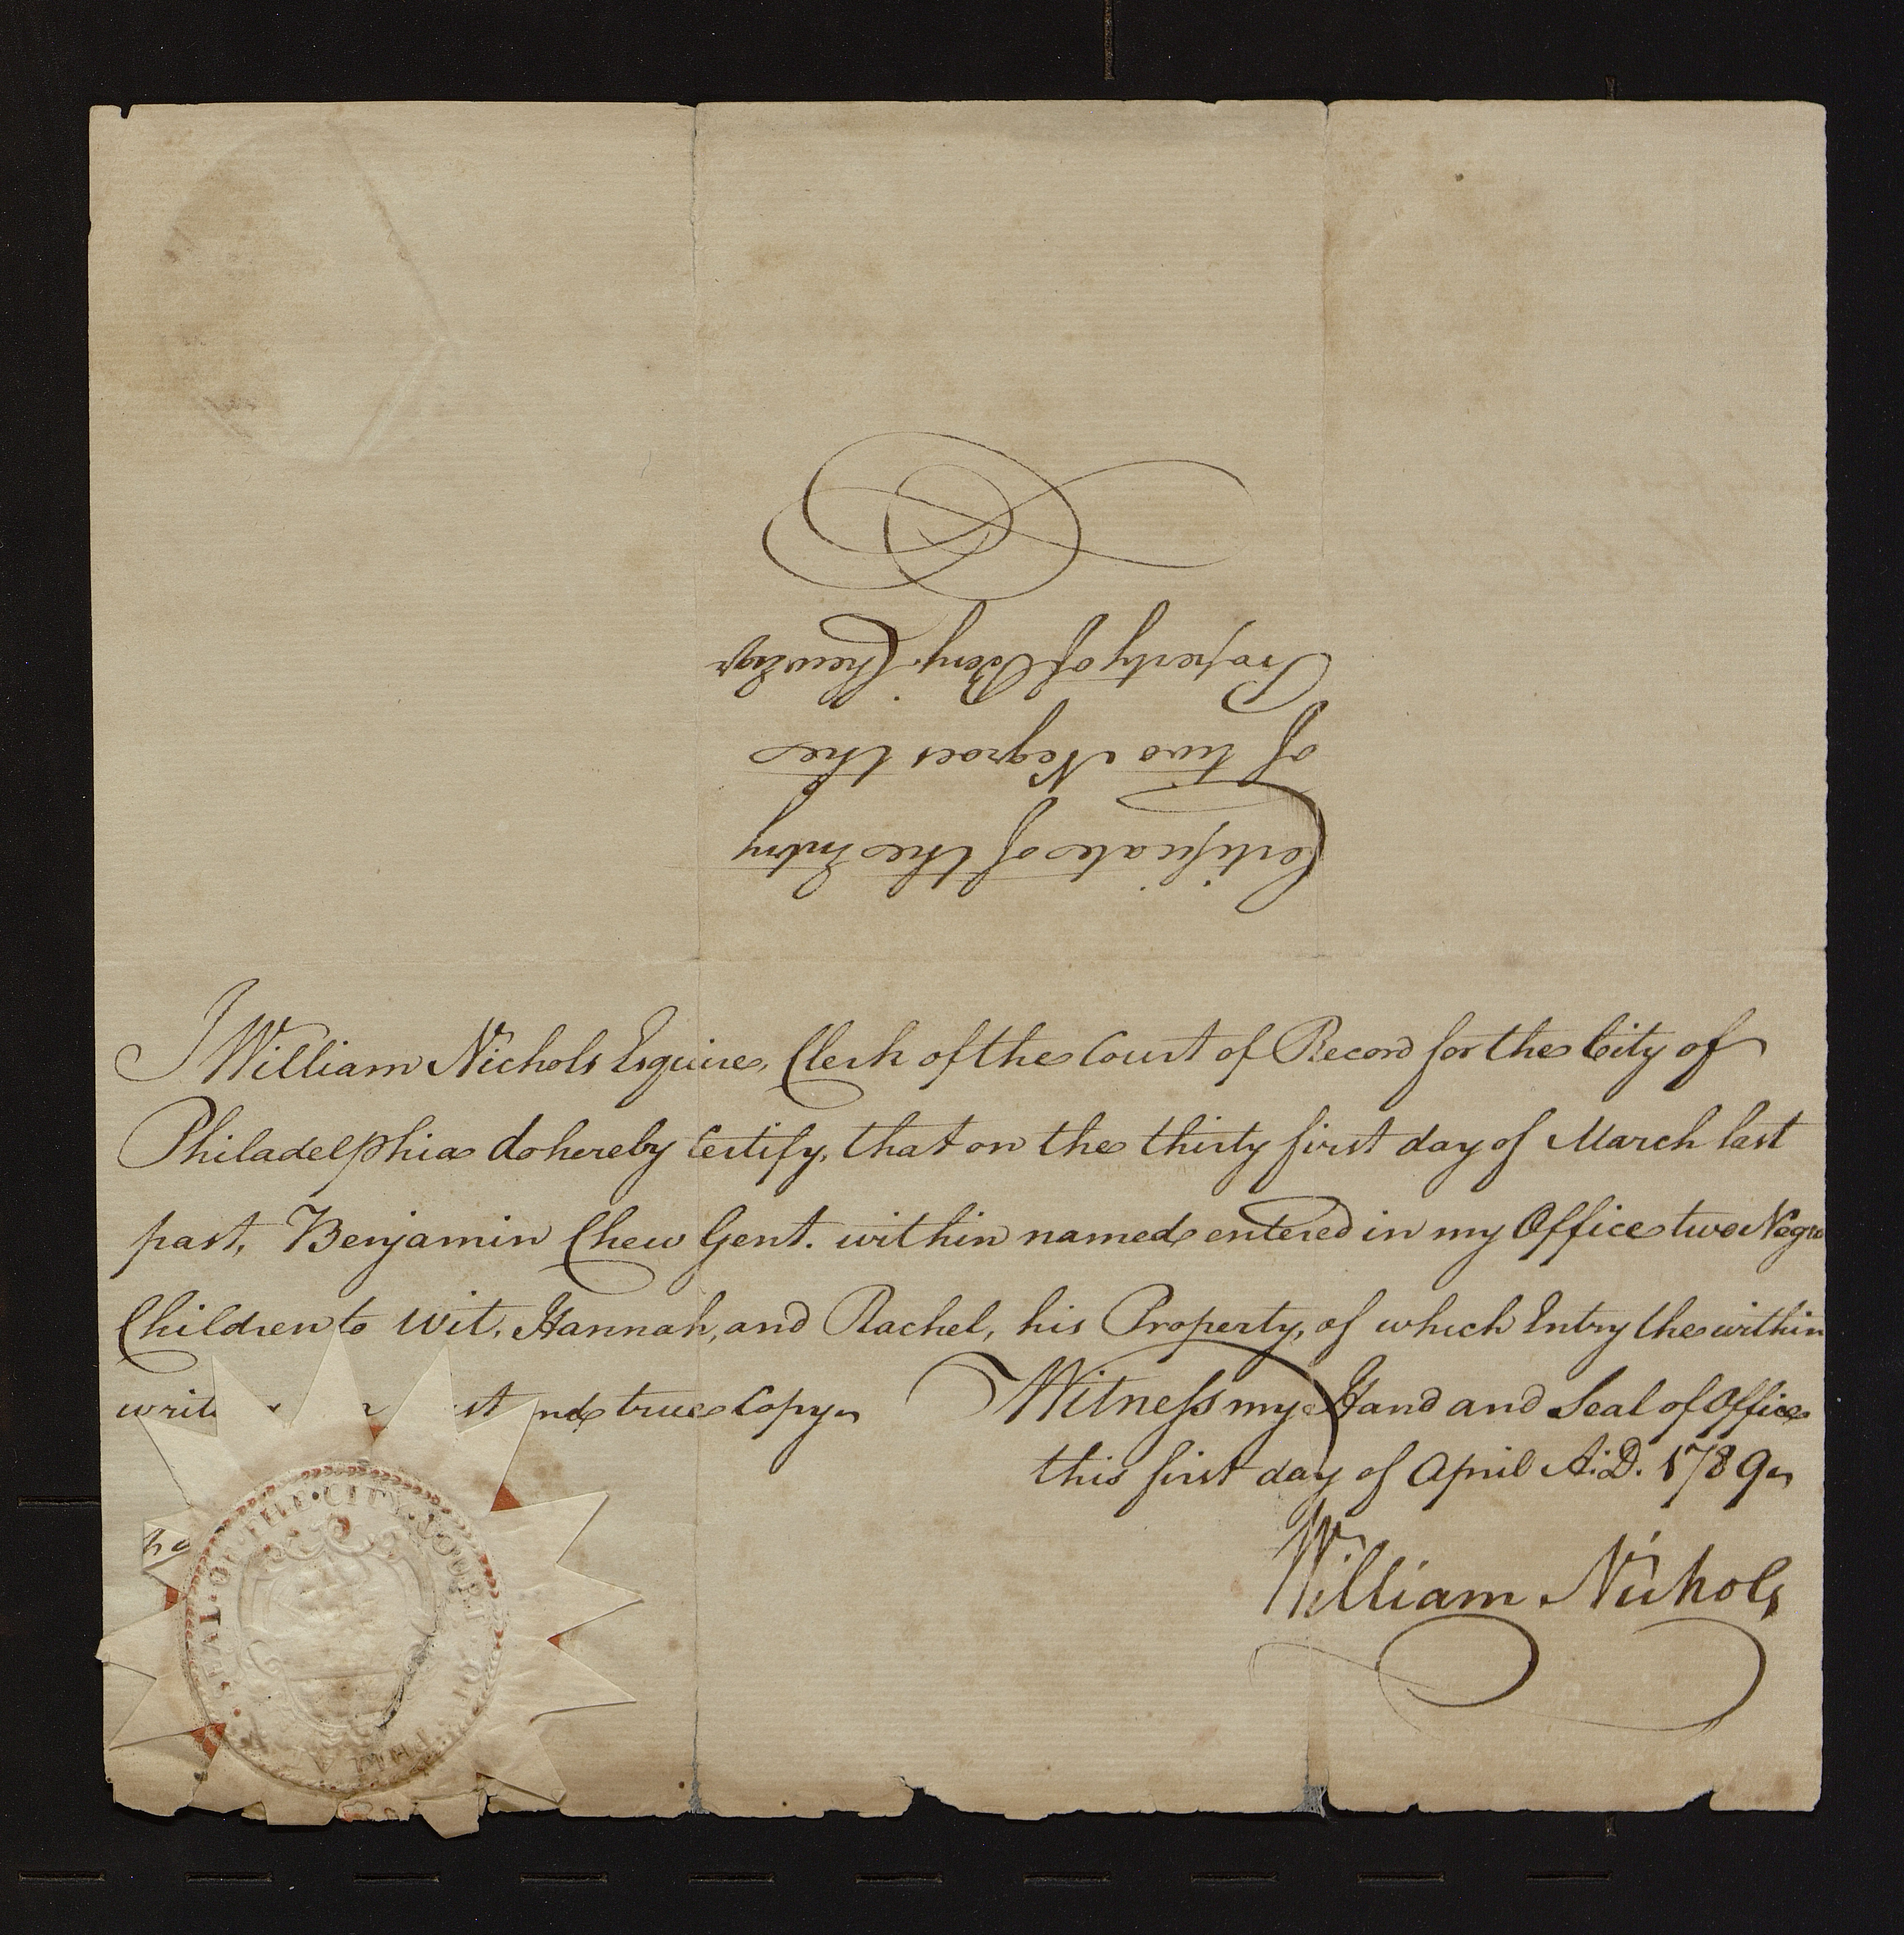 Certificate of the Entry
of two Negroes the
Property of Benj. Chew Esqr
I William Nichols Esquire, Clerk of the Court of Record for the City of
Philadelphia do hereby Certify, that on the thirty first day of March last
past, Benjamin Chew Gent. within named entered in my Office two Negro
Children to wit, Hannah, and Rachel, his Property, of which Entry the within
true Copy
Witness my Hand and Seal of Office
this first day of April A.D. 1789
William Nichols
SEAL · OF · THE · CITY · COURT · OF